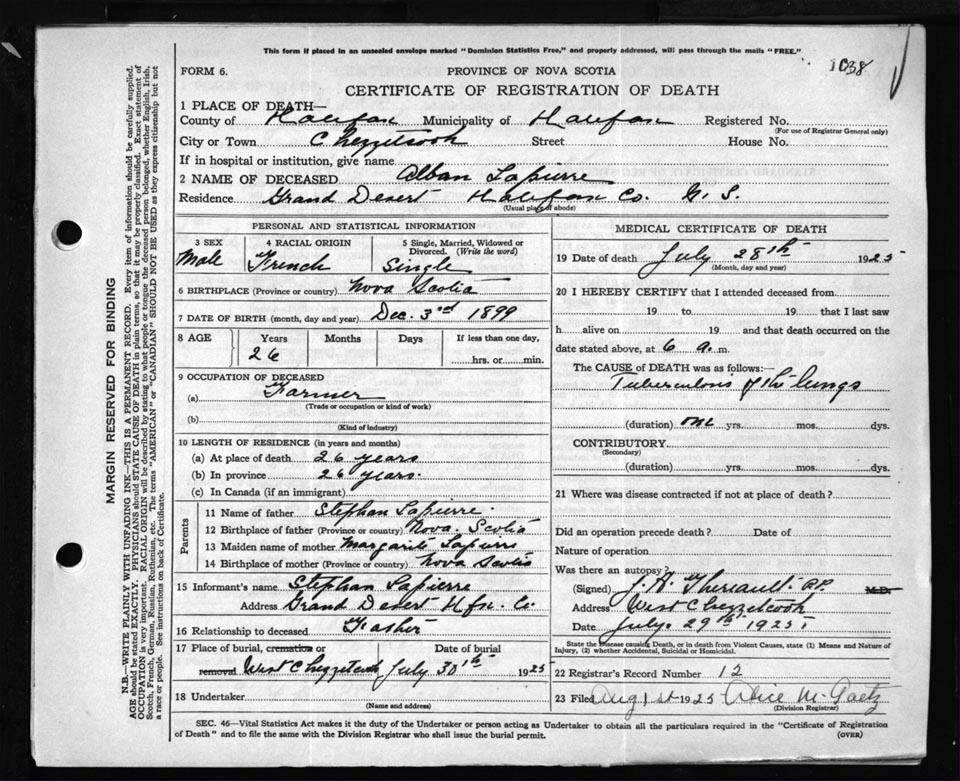 This form if placed in an unsealed envelope marked "Dominion Statistics Free," and properly addressed, will pass through the mails "FREE."
1038
FORM 6. PROVINCE OF NOVA SCOTIA
CERTIFICATE OF REGISTRATION OF DEATH
1 PLACE OF DEATH—
County of Halifax Municipality of Halifax Registered No.
(For use of Registrar General only)
City or Town Chezzetcook Street House No.
If in hospital or institution, give name
2 NAME OF DECEASED Alban Lapierre
Residence Grand Desert Halifax Co. N. S.
(Usual place of abode)
PERSONAL AND STATISTICAL INFORMATION
3 SEX 4 RACIAL ORIGIN 5 Single, Married, Widowed or Divorced. (Write the word)
Male French Single
6 BIRTHPLACE (Province or country) Nova Scotia
7 DATE OF BIRTH (month, day and year) Dec. 3rd 1899
8 AGE Years Months Days If less than one day,
26 hrs. or min.
9 OCCUPATION OF DECEASED
(a) Farmer
(Trade or occupation or kind of work)
(b)
(Kind of industry)
10 LENGTH OF RESIDENCE (in years and months)
(a) At place of death 26 years
(b) In province 26 years.
(c) In Canada (if an immigrant)
Parents
11 Name of father Stephan Lapierre.
12 Birthplace of father (Province or country) Nova. Scotia
13 Maiden name of mother Margarite Lapierre
14 Birthplace of mother (Province or country) Nova Scotia
15 Informant's name Stephan Lapierre
Address Grand Desert Hfx. Co.
16 Relationship to deceased Father
17 Place of burial, cremation or Date of burial
removal West Chezzetcook July 30th 1925
18 Undertaker
(Name and address)
MEDICAL CERTIFICATE OF DEATH
19 Date of death July 28th 1925
(Month, day and year)
20 I HEREBY CERTIFY that I attended deceased from
19 to 19 that I last saw
h alive on 19 and that death occurred on
date stated above, at 6 a. m.
The CAUSE of DEATH was as follows:—
Tuberculosis of the lungs
(duration) one yrs. mos. dys.
CONTRIBUTORY
(Secondary)
(duration) yrs. mos. dys.
21 Where was disease contracted if not at place of death?
Did an operation precede death? Date of
Nature of operation
Was there an autopsy?
(Signed) J. A. Theriault. P.P. M.D.
Address West Chezzetcook
Date July. 29th 1925
State the Disease causing Death, or in death from Violent Causes, state (1) Means and Nature of Injury, (2) whether Accidental, Suicidal or Homicidal.
22 Registrar's Record Number 12
23 Filed Aug 1st 1925 Alice M. Gaetz
(Division Registrar)
SEC. 46—Vital Statistics Act makes it the duty of the Undertaker or person acting as Undertaker to obtain all the particulars required in the "Certificate of Registration
of Death" and to file the same with the Division Registrar who shall issue the burial permit. (OVER)
MARGIN RESERVED FOR BINDING
N.B.—WRITE PLAINLY WITH UNFADING INK—THIS IS A PERMANENT RECORD. Every item of information should be carefully supplied.
AGE should be stated EXACTLY. PHYSICIANS should STATE CAUSE OF DEATH in plain terms, so that it may be properly classified. Exact statement of
OCCUPATION is very important. RACIAL ORIGIN will be described by stating to what people or tongue the deceased person belonged, whether English, Irish,
Scotch, French, German, Russian, Ruthenian, etc. The terms "AMERICAN" or "CANADIAN" SHOULD NOT BE USED as they express citizenship but not
a race or people. See instructions on back of Certificate.